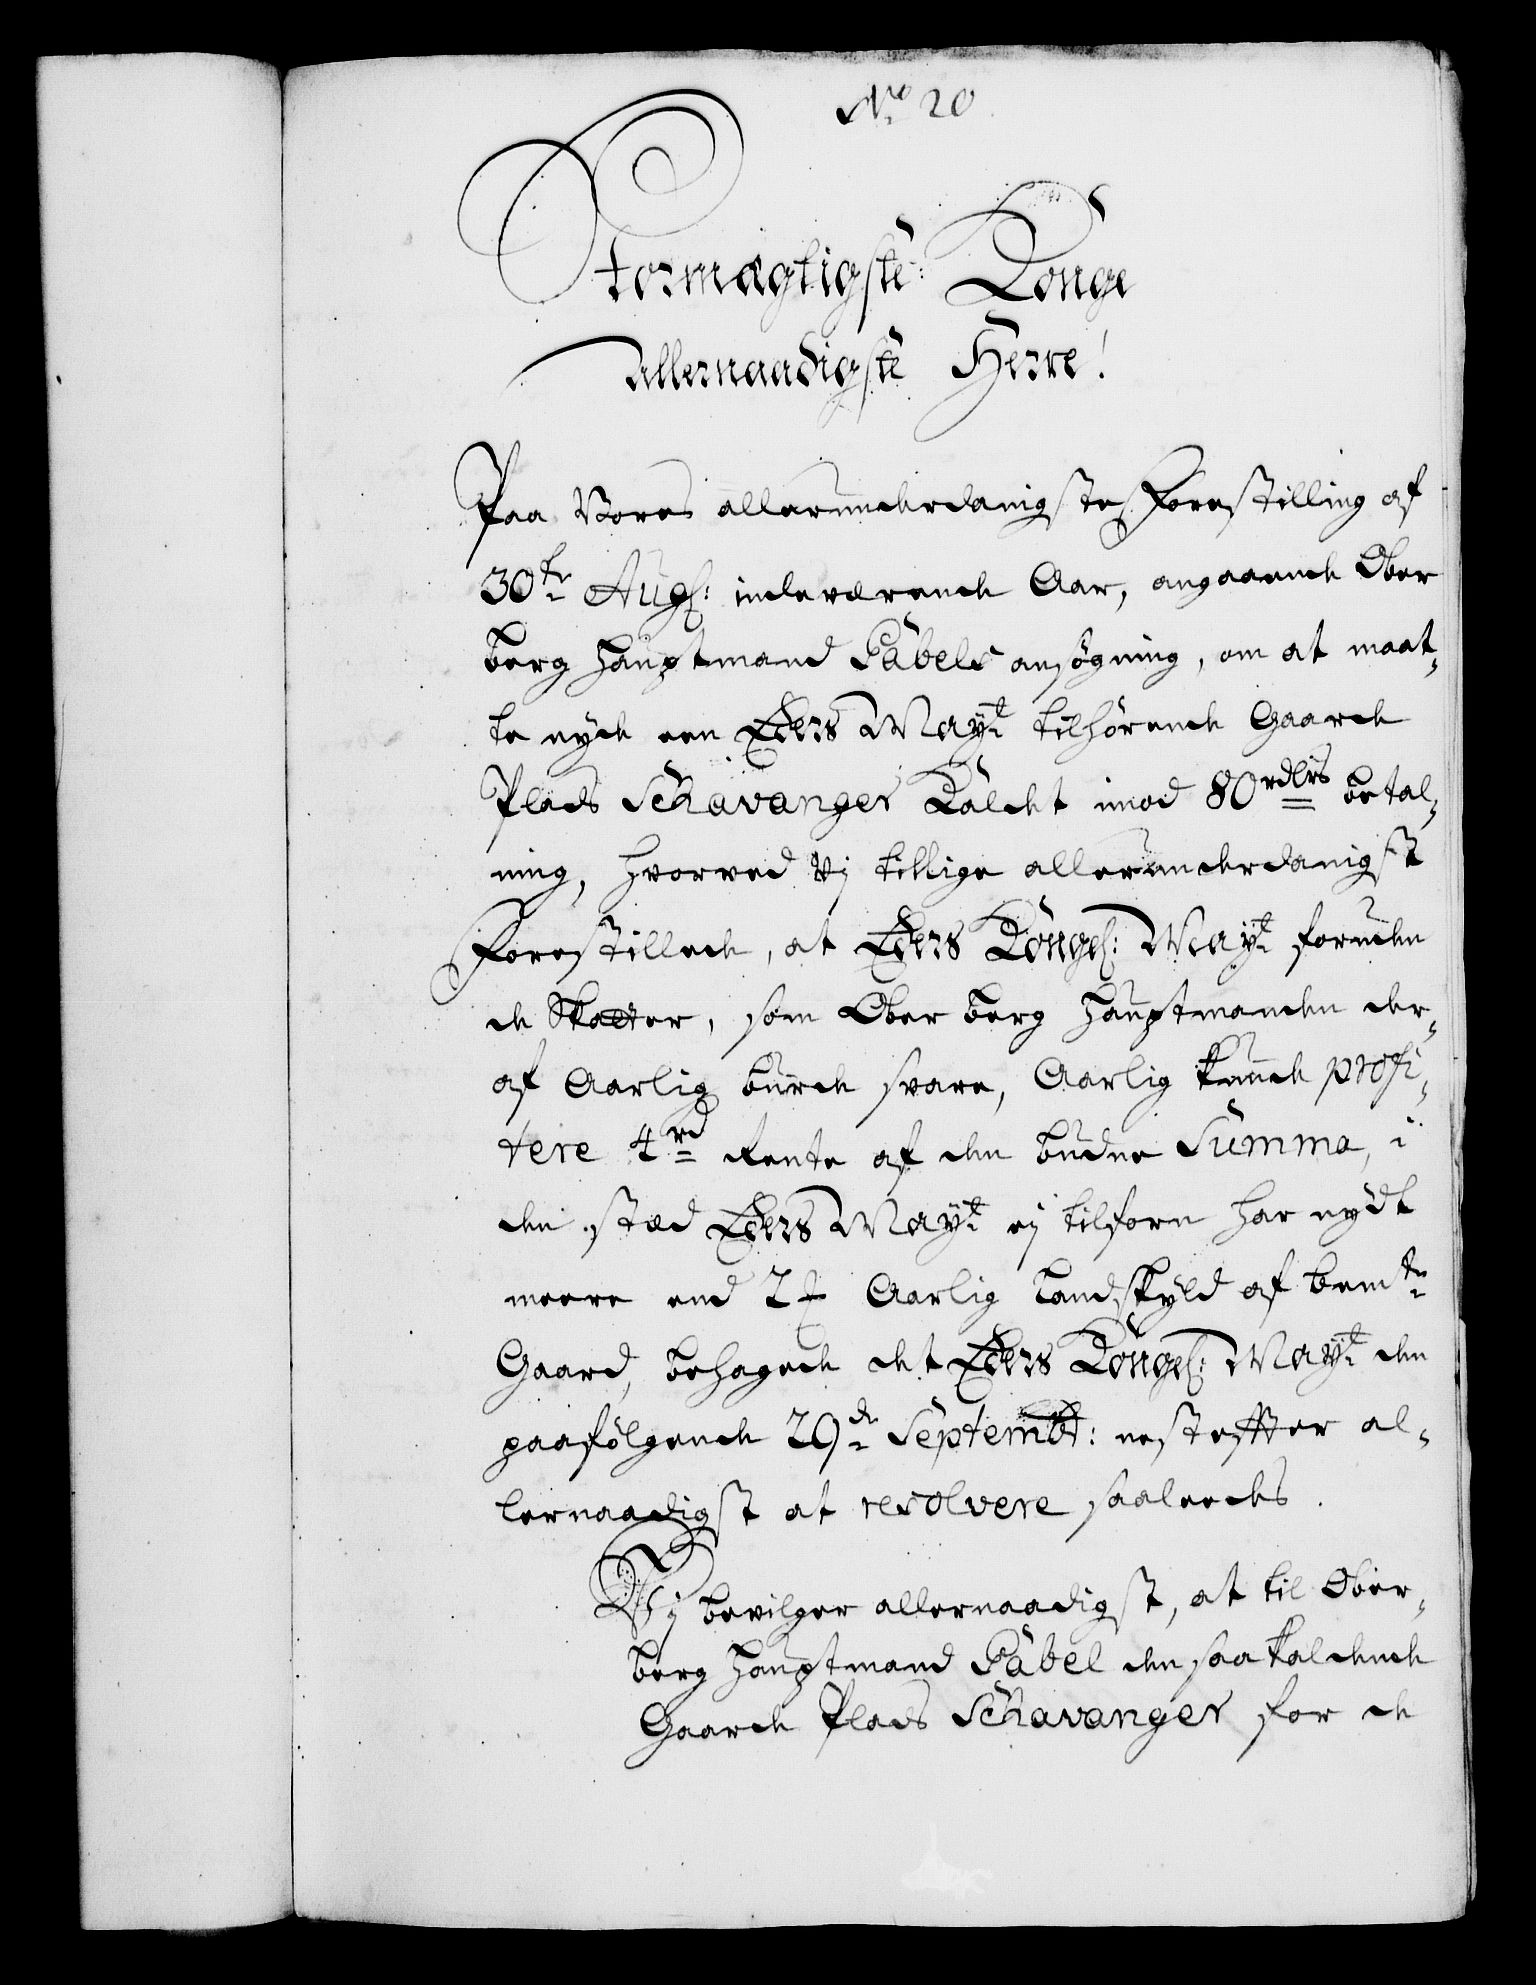 No 20
Stormägtigste Konge
Allernaadigste Herre!
Paa Vores allerunderdanigste Forestilling af
30te Augs: indeværende Aar, angaaende Ober
berg Hauptmand Pabels ansøgning, om at maat-
te nyde een Eders Mayt tilhørende Gaarde
Plads Schavanger Kaldet imod 80 rdlrs betal-
ning, hvorved Vj tillige allerunderdanigst
Forestillede, at Eders Kongel: Mayt foruden
de Skatter, som Ober berg Hauptmanden der-
af Aarlig burde svare, Aarlig kunde profi-
tere 4 rd Rente af den budne Summa, i
den stæd Eders Mayt ej tilforn har nydt
meere end 2 Aarlig Landskyld af bemte
Gaard, behagede det Eders Kongel: Mayt den
paafølgende 29de Septembr: nestefter al-
lernaadigst at resolvere saaleedes.
Vj bevilger allernaadigst, at til Ober-
berg Hauptmand Pabel den saa kaldende
Gaarde Plads Schavanger for de